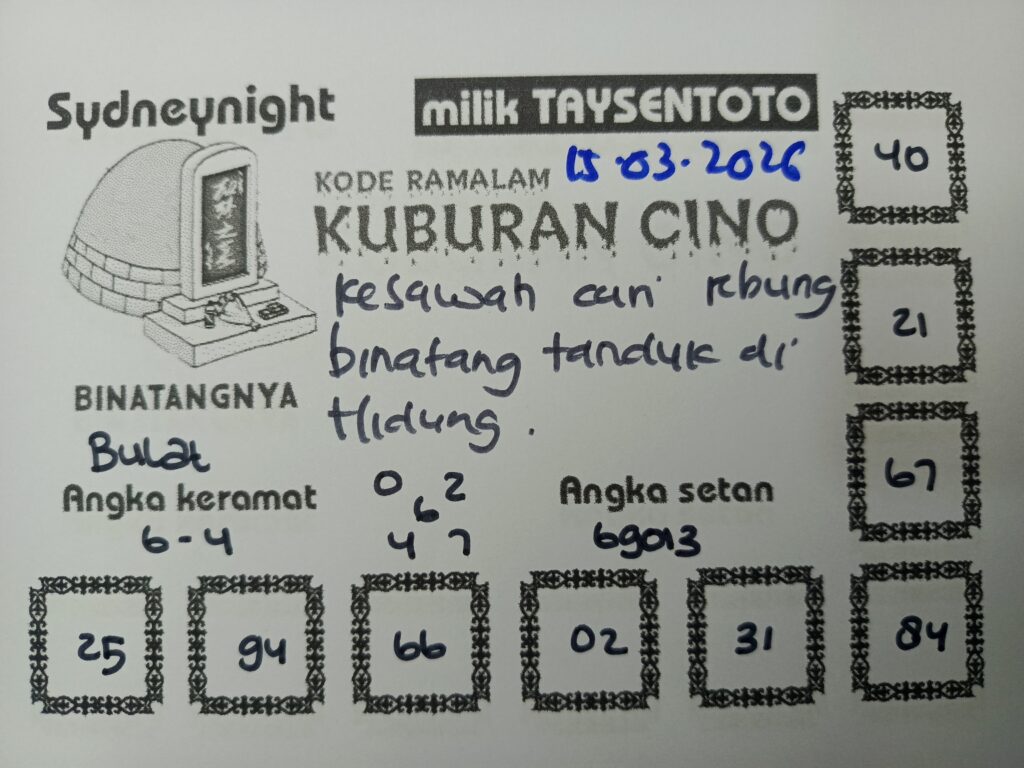 Sydneynight
milik TAYSENTOTO
KODE RAMALAM 15.03.2026
KUBURAN CINO
Kesawah cari rebung
binatang tanduk di
Hidung.
BINATANGNYA
Bulat
Angka keramat
6-4
0 2
6
4 7
Angka setan
69013
40
21
67
25 94 66 02 31 84